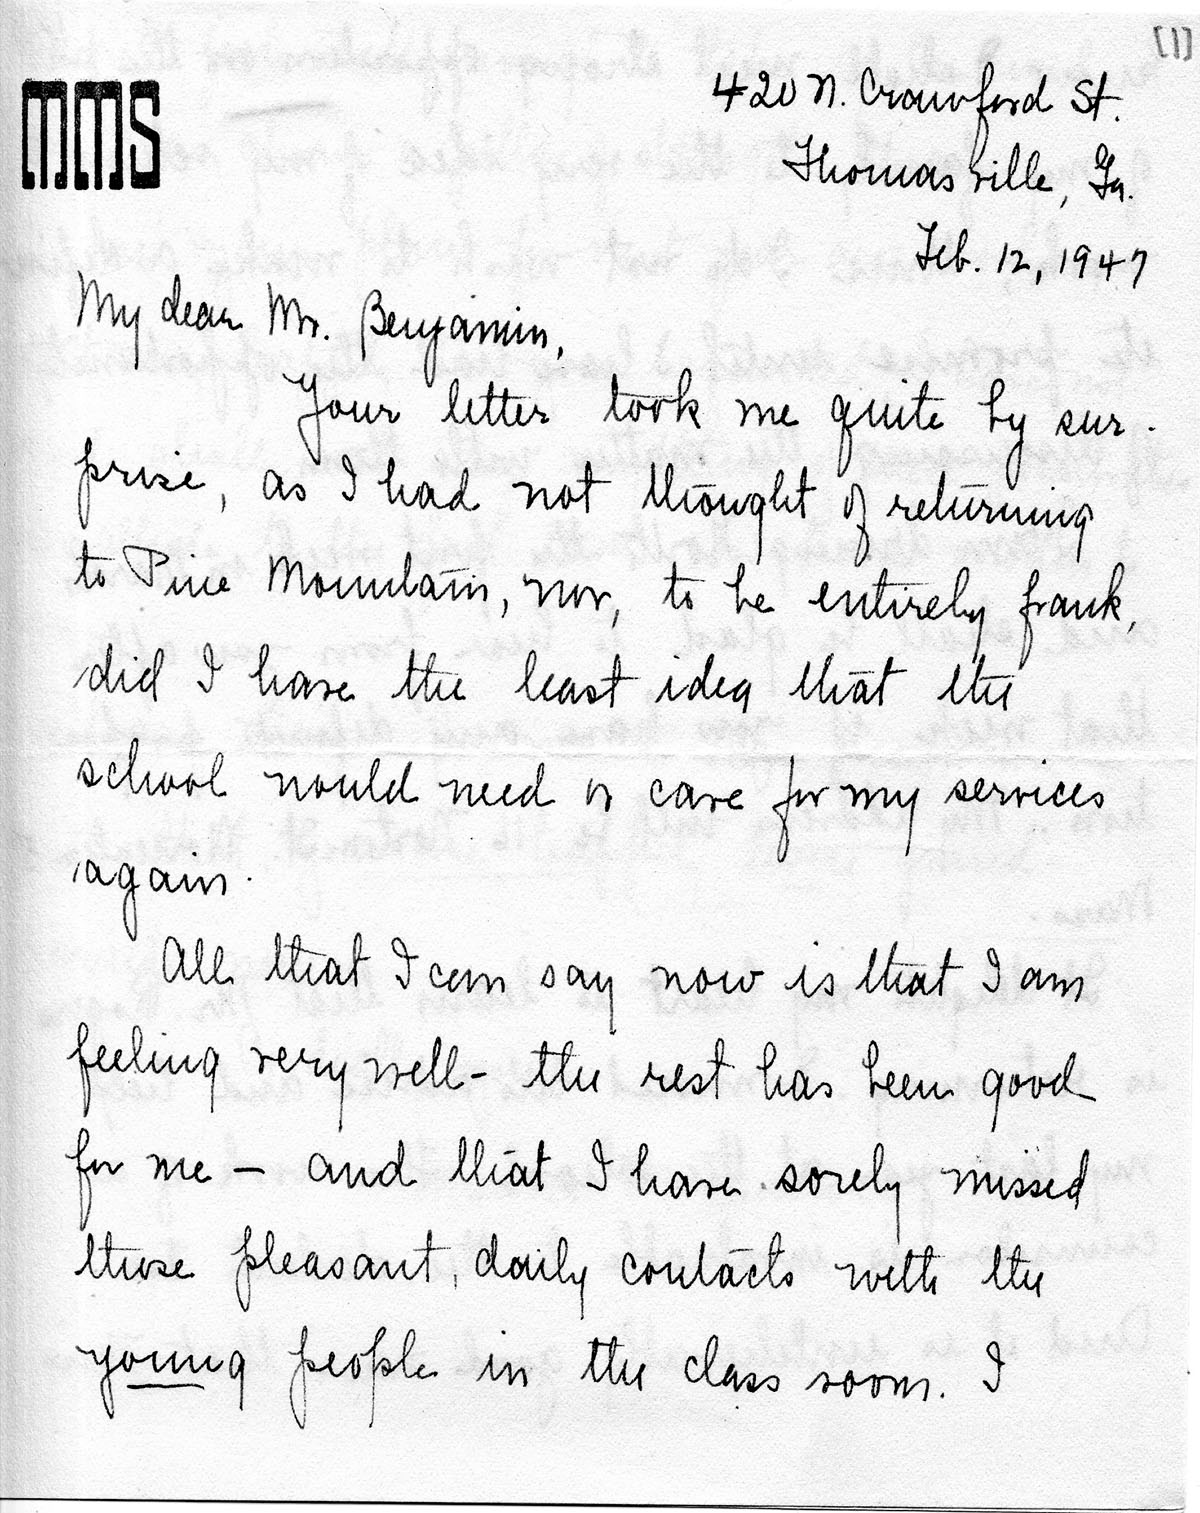 [1]
MMS
420 N. Crawford St.
Thomasville, Ga.
Feb. 12, 1947
My dear Mr. Benjamin,
Your letter took me quite by sur-
prise, as I had not thought of returning
to Pine Mountain, nor, to be entirely frank,
did I have the least idea that the
school would need or care for my services
again.
All that I can say now is that I am
feeling very well - the rest has been good
for me — and that I have sorely missed
those pleasant, daily contacts with the
young people in the class room. I